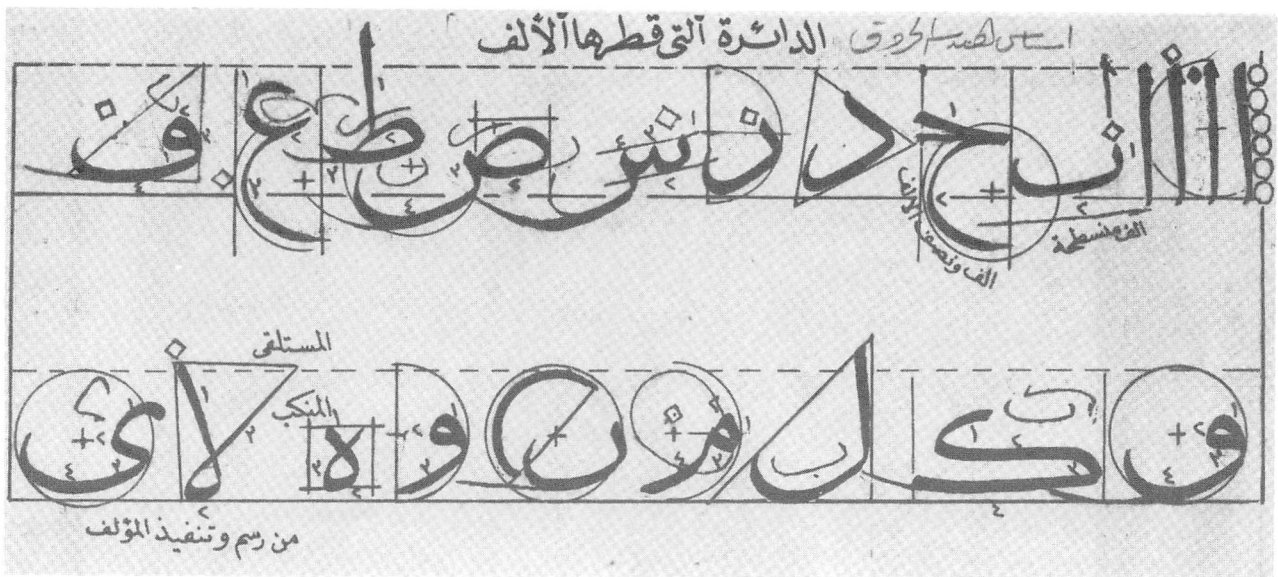 اساس هندسة الحروف الدائرة التى قطرها الألف
ا ا ا ا ب ح د ر س ص ط ع ف
الف منسطحة
الف ونصف الالف
ق ك ل م ن و ه لا ى
المستلقى
المنكب
من رسم وتنفيذ المؤلف